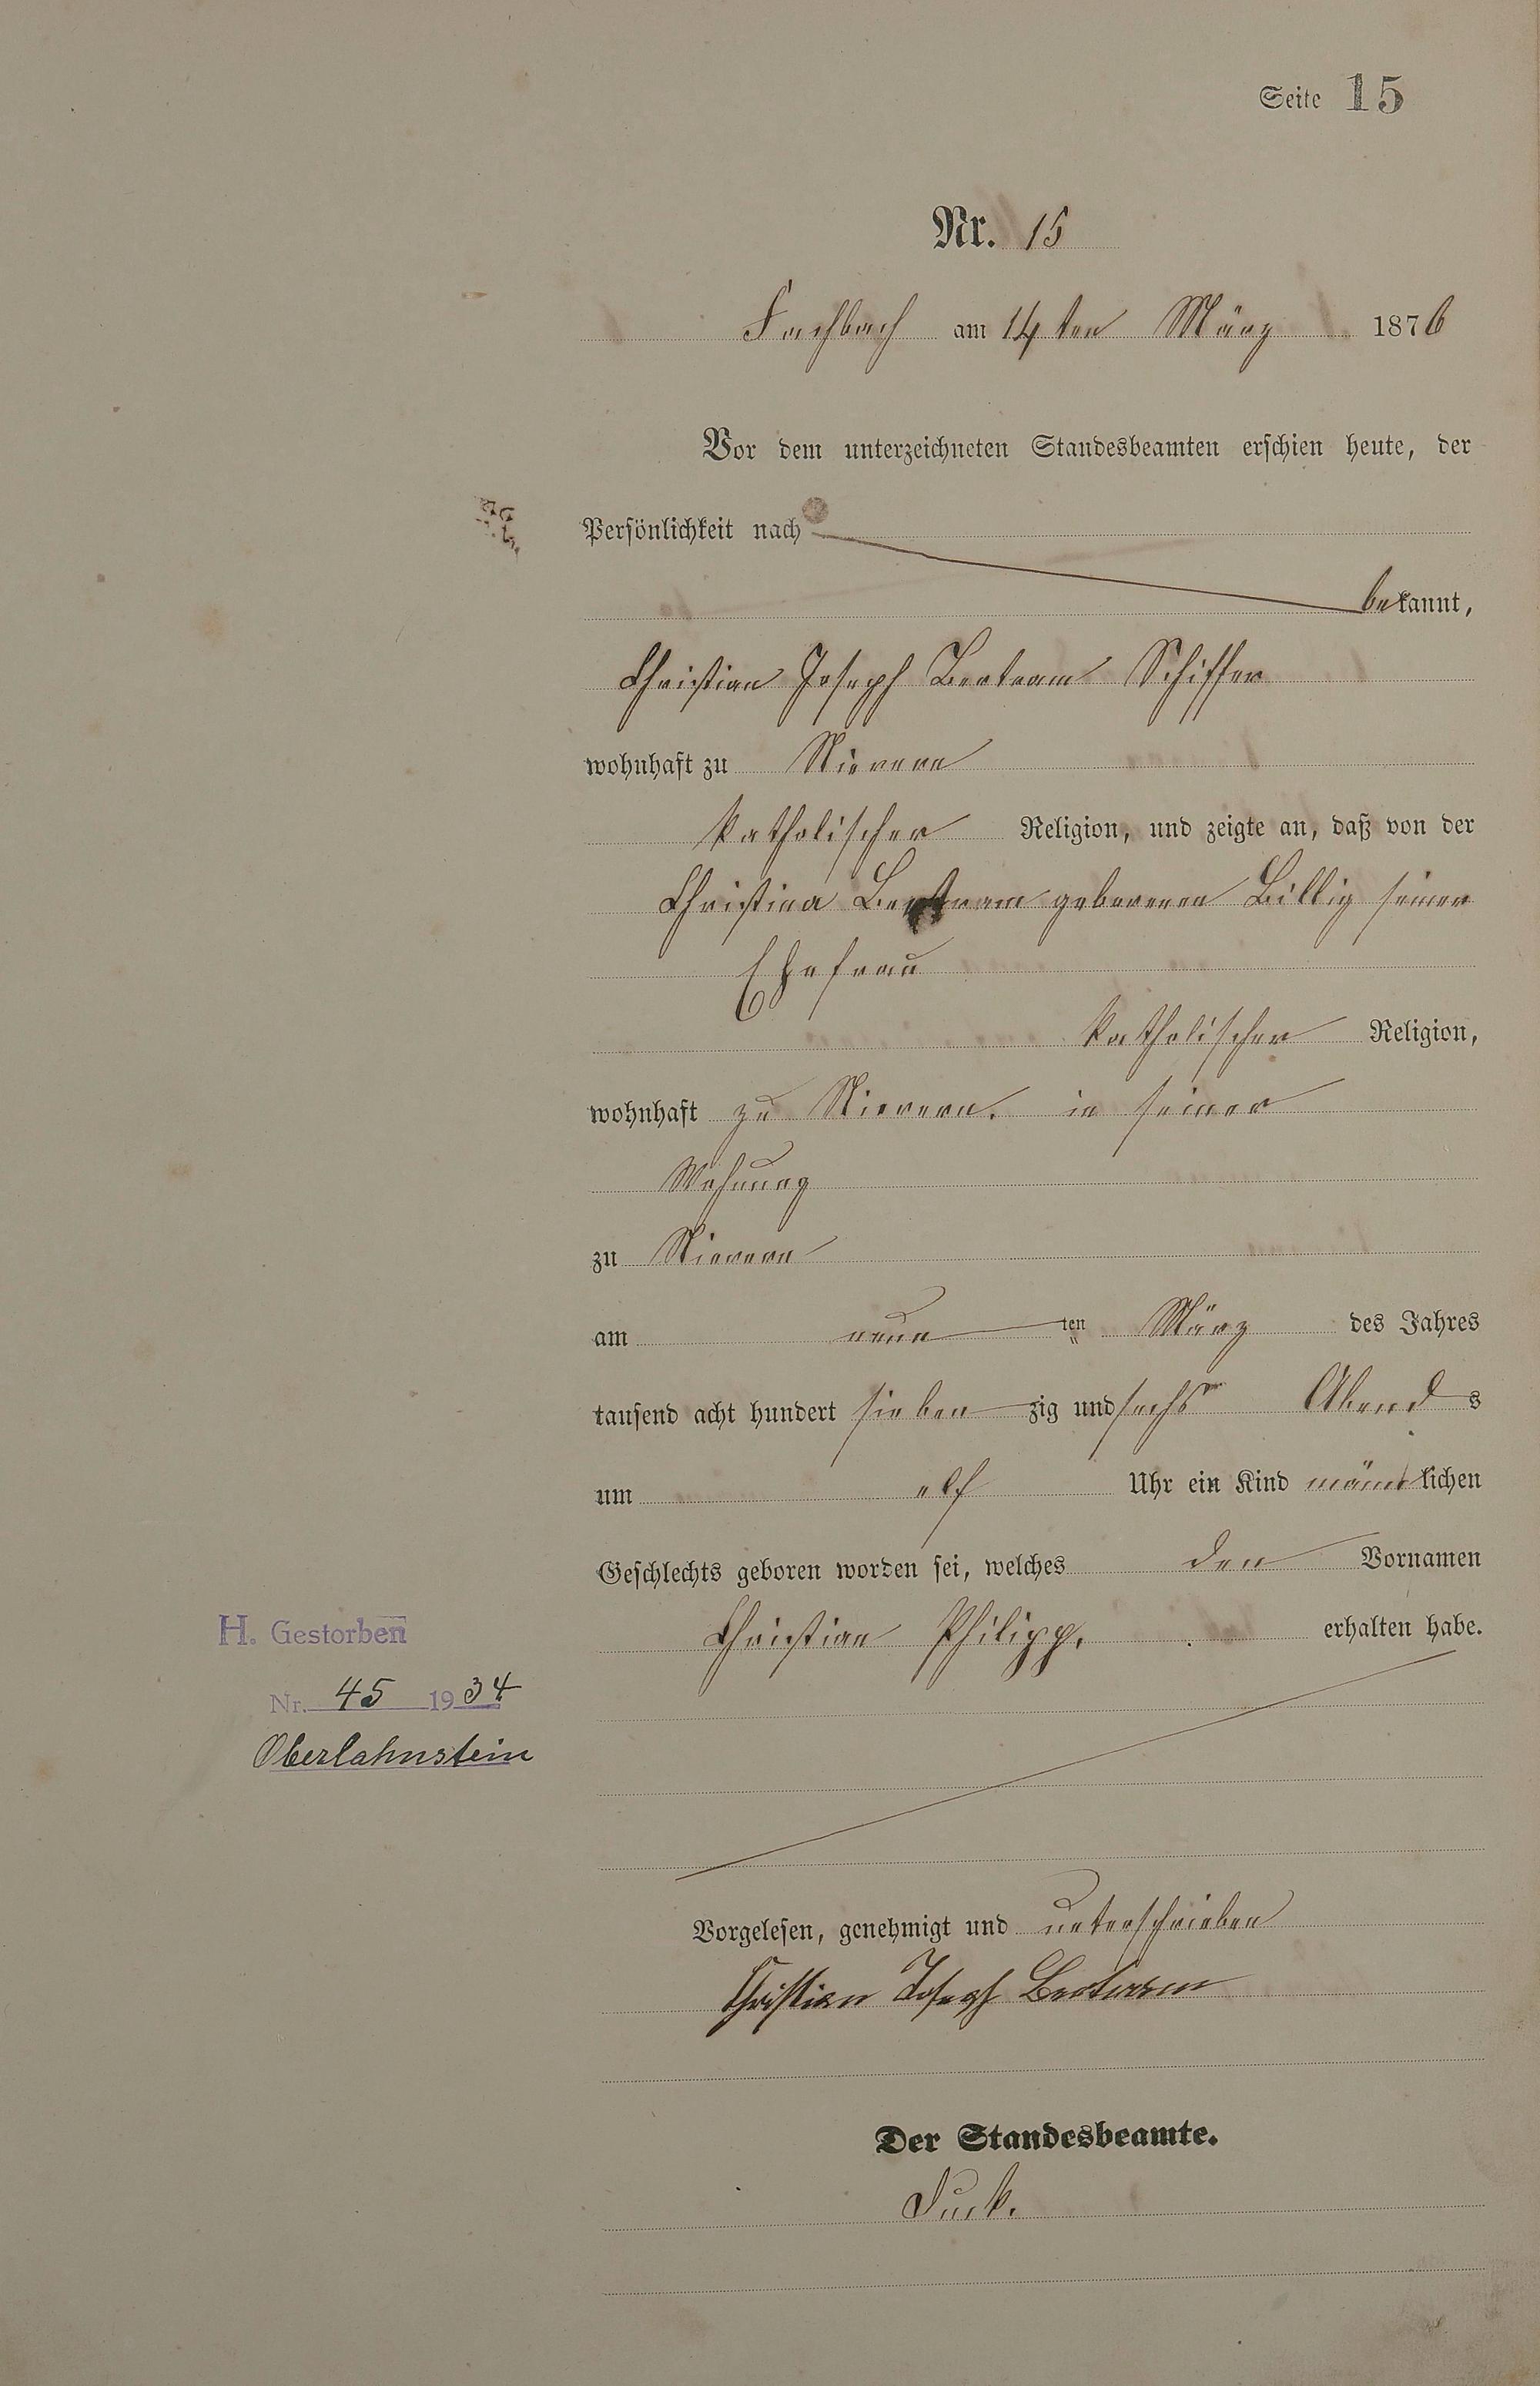 Seite 15
Nr. 15
Fachbach am 14ten März 1876
Vor dem unterzeichneten Standesbeamten erschien heute, der
Persönlichkeit nach
bekannt,
Christian Joseph Bertram Schiffer
wohnhaft zu Nievern
katholischer Religion, und zeigte an, daß von der
Christina Bertram geborenen Billig seiner
Ehefrau
katholischer Religion,
wohnhaft zu Nievern. in seiner
Wohnung
zu Nievern
am neun ten März des Jahres
tausend acht hundert sieben zig und sechs Abends
um elf Uhr ein Kind männlichen
Geschlechts geboren worden sei, welches den Vornamen
Christian Philipp. erhalten habe.
H. Gestorben
Nr. 45 1934
Oberlahnstein
Vorgelesen, genehmigt und unterschrieben
Christian Joseph Bertram
Der Standesbeamte.